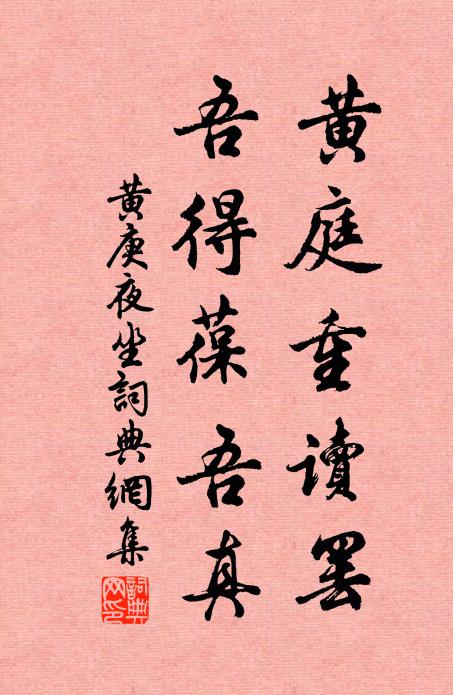 黃庭重讀罢
吾得葆吾真
黃庚夜坐詞典網集
詞典網印